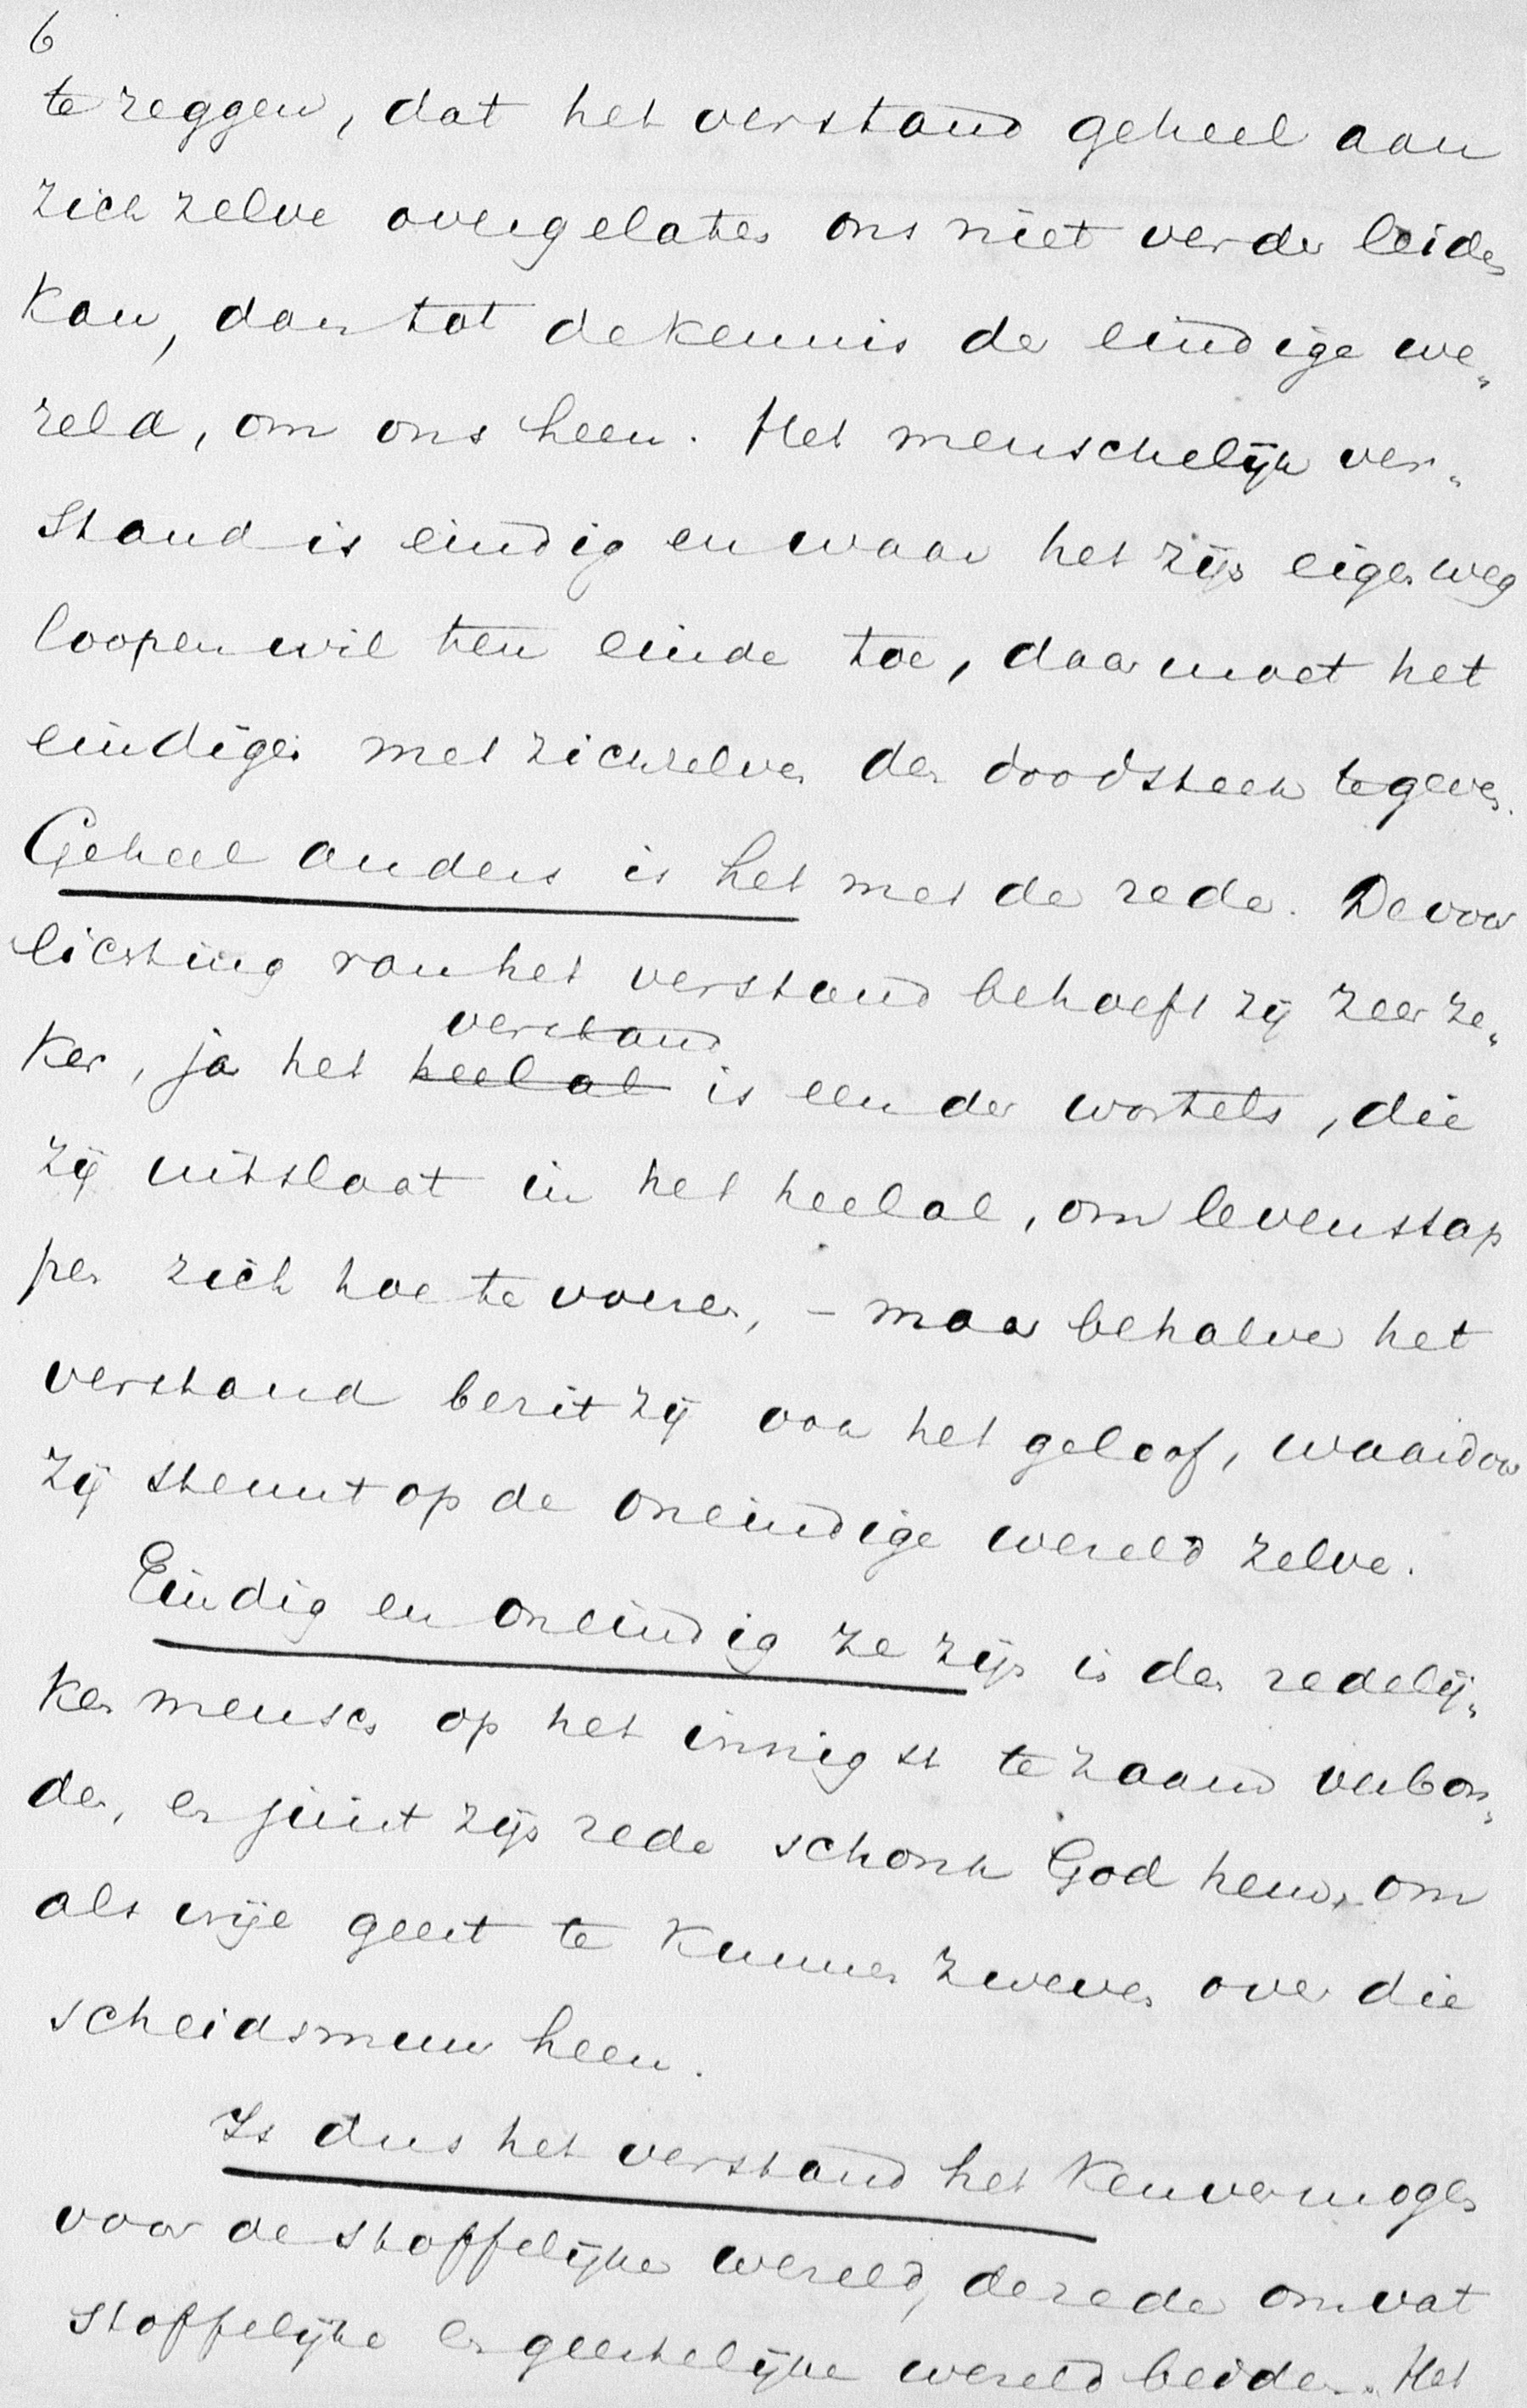 6
te zeggen, dat het verstand geheel aan
zich zelve overgelaten ons niet verder leiden
kan, dan tot de kennis der eindige we„
reld, om ons heen. Het menschelijk ver„
stand is eindig en waar het zijn eigen weg
loopen wil ten einde toe, daar moet het
eindigen met zichzelven den doodsteek te geven.
Geheel anders is het met de rede. De voor
lichting van het verstand behoeft zij zeer ze„
verstand
ker, ja het heelal is een der wortels, die
zij uitslaat in het heelal, om levenssap
pen zich toe te voeren, – maar behalve het
verstand bezit zij ook het geloof, waardoor
zij steunt op de oneindige wereld zelve.
Eindig en oneindig ze zijn in den redelij„
ken mensch op het innigst te zaam verbon„
den, en juist zijn rede schonk God hem, om
als vrije geest te kunnen zweven over die
scheidsmuur heen.
Is dus het verstand het kenvermogen
voor de stoffelijke wereld, de rede omvat
stoffelijke en geestelijke wereld beiden. Het